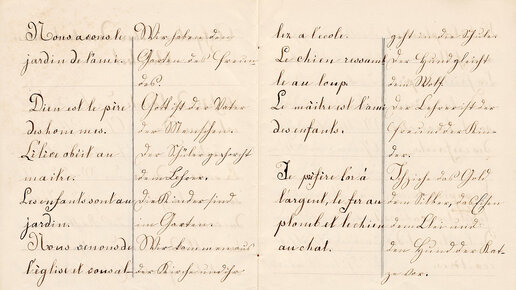 Nous avons le
jardin de l'ami.
Dieu est le père
des hommes.
L'élève obéit au
maître.
Les enfants sont au
jardin.
Nous venons de
l'église et vous al-
Wir haben den
Garten des Freun-
des.
Gott ist der Vater
der Menschen.
Der Schüler gehorcht
dem Lehrer.
Die Kinder sind
im Garten.
Wir kommen aus
der Kirche und Ihr
lez à l'école.
Le chien ressemb
le au loup.
Le maître est l'ami
des enfants.
Je préfère l'or à
l'argent, le fer au
plomb et le chien
au chat.
geht in die Schule.
Der Hund gleicht
dem Wolf.
Der Lehrer ist der
Freund der Kin-
der.
Ich ziehe das Gold
dem Silber, das Eisen
dem Blei und
den Hund der Kat-
ze vor.